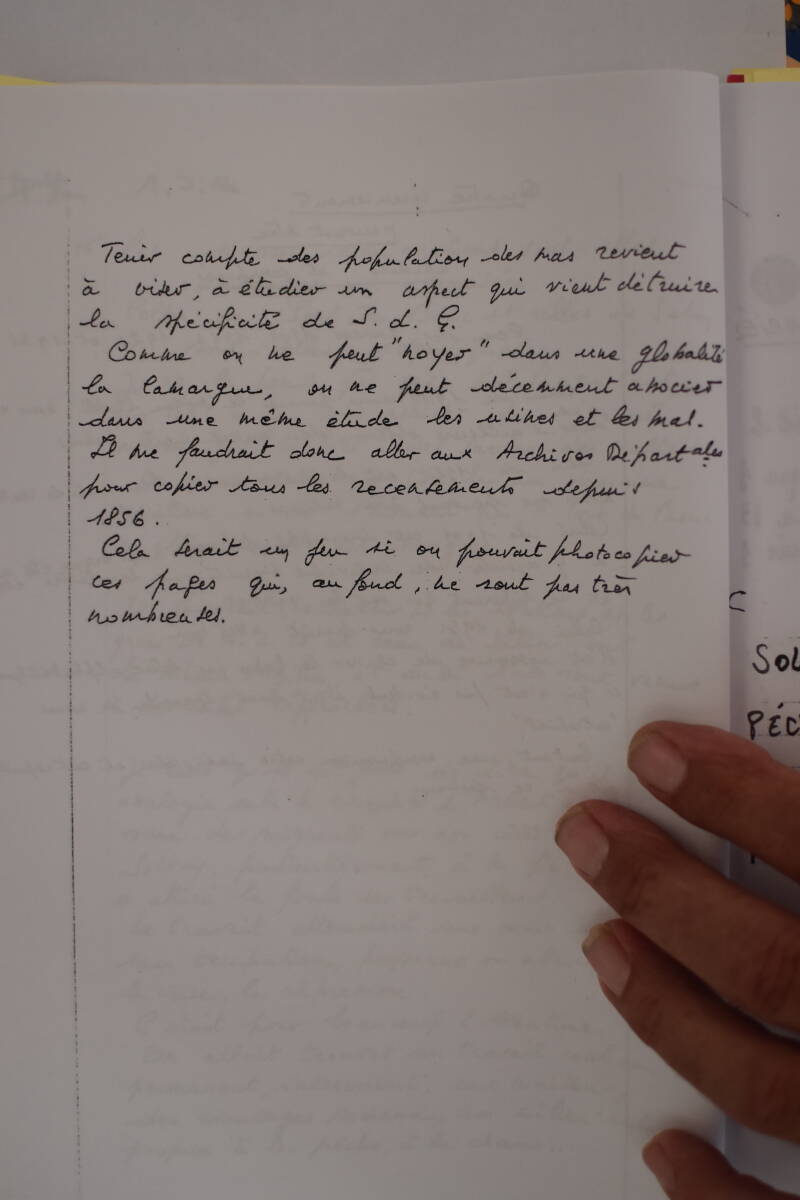 Tenir compte des population des mas revient
à viser, à étudier un aspect qui vient détruire
la spécificité de S. d. G.
Comme on ne peut "noyer" dans une globalité
la Camargue, on ne peut décemment associer
dans une même étude les usines et les mas.
Il me faudrait donc aller aux Archives Départales
pour copier tous les recensements depuis
1856.
Cela serait un jeu si on pouvait photocopier
ces pages qui, au fond, ne sont pas très
nombreuses.
SOL
PÉC